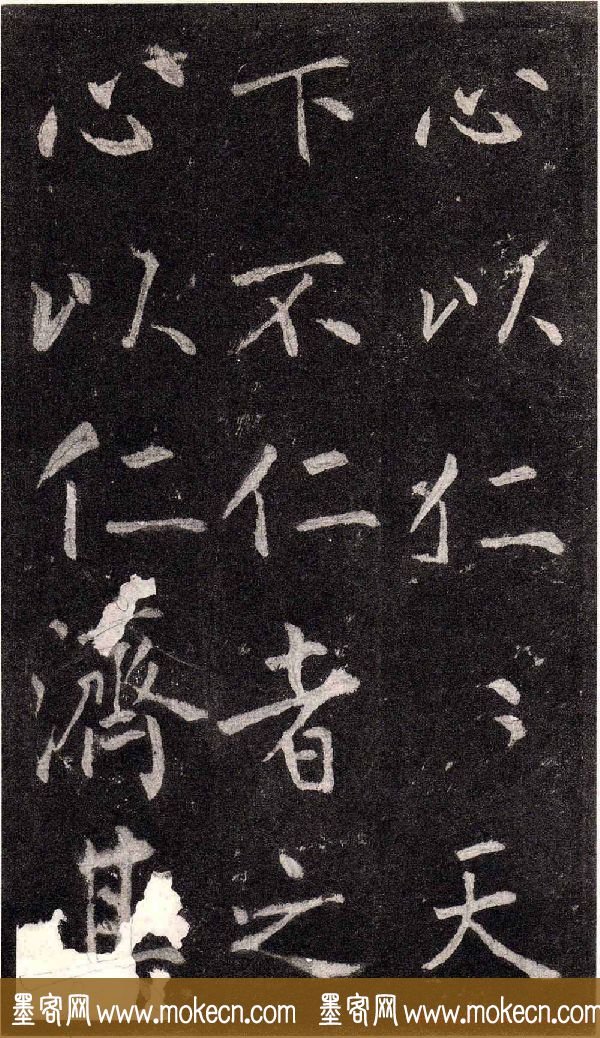 心以仁〻天
下不仁者之
心以仁濟其
墨客网 www.mokecn.com 墨客网 www.mokecn.com